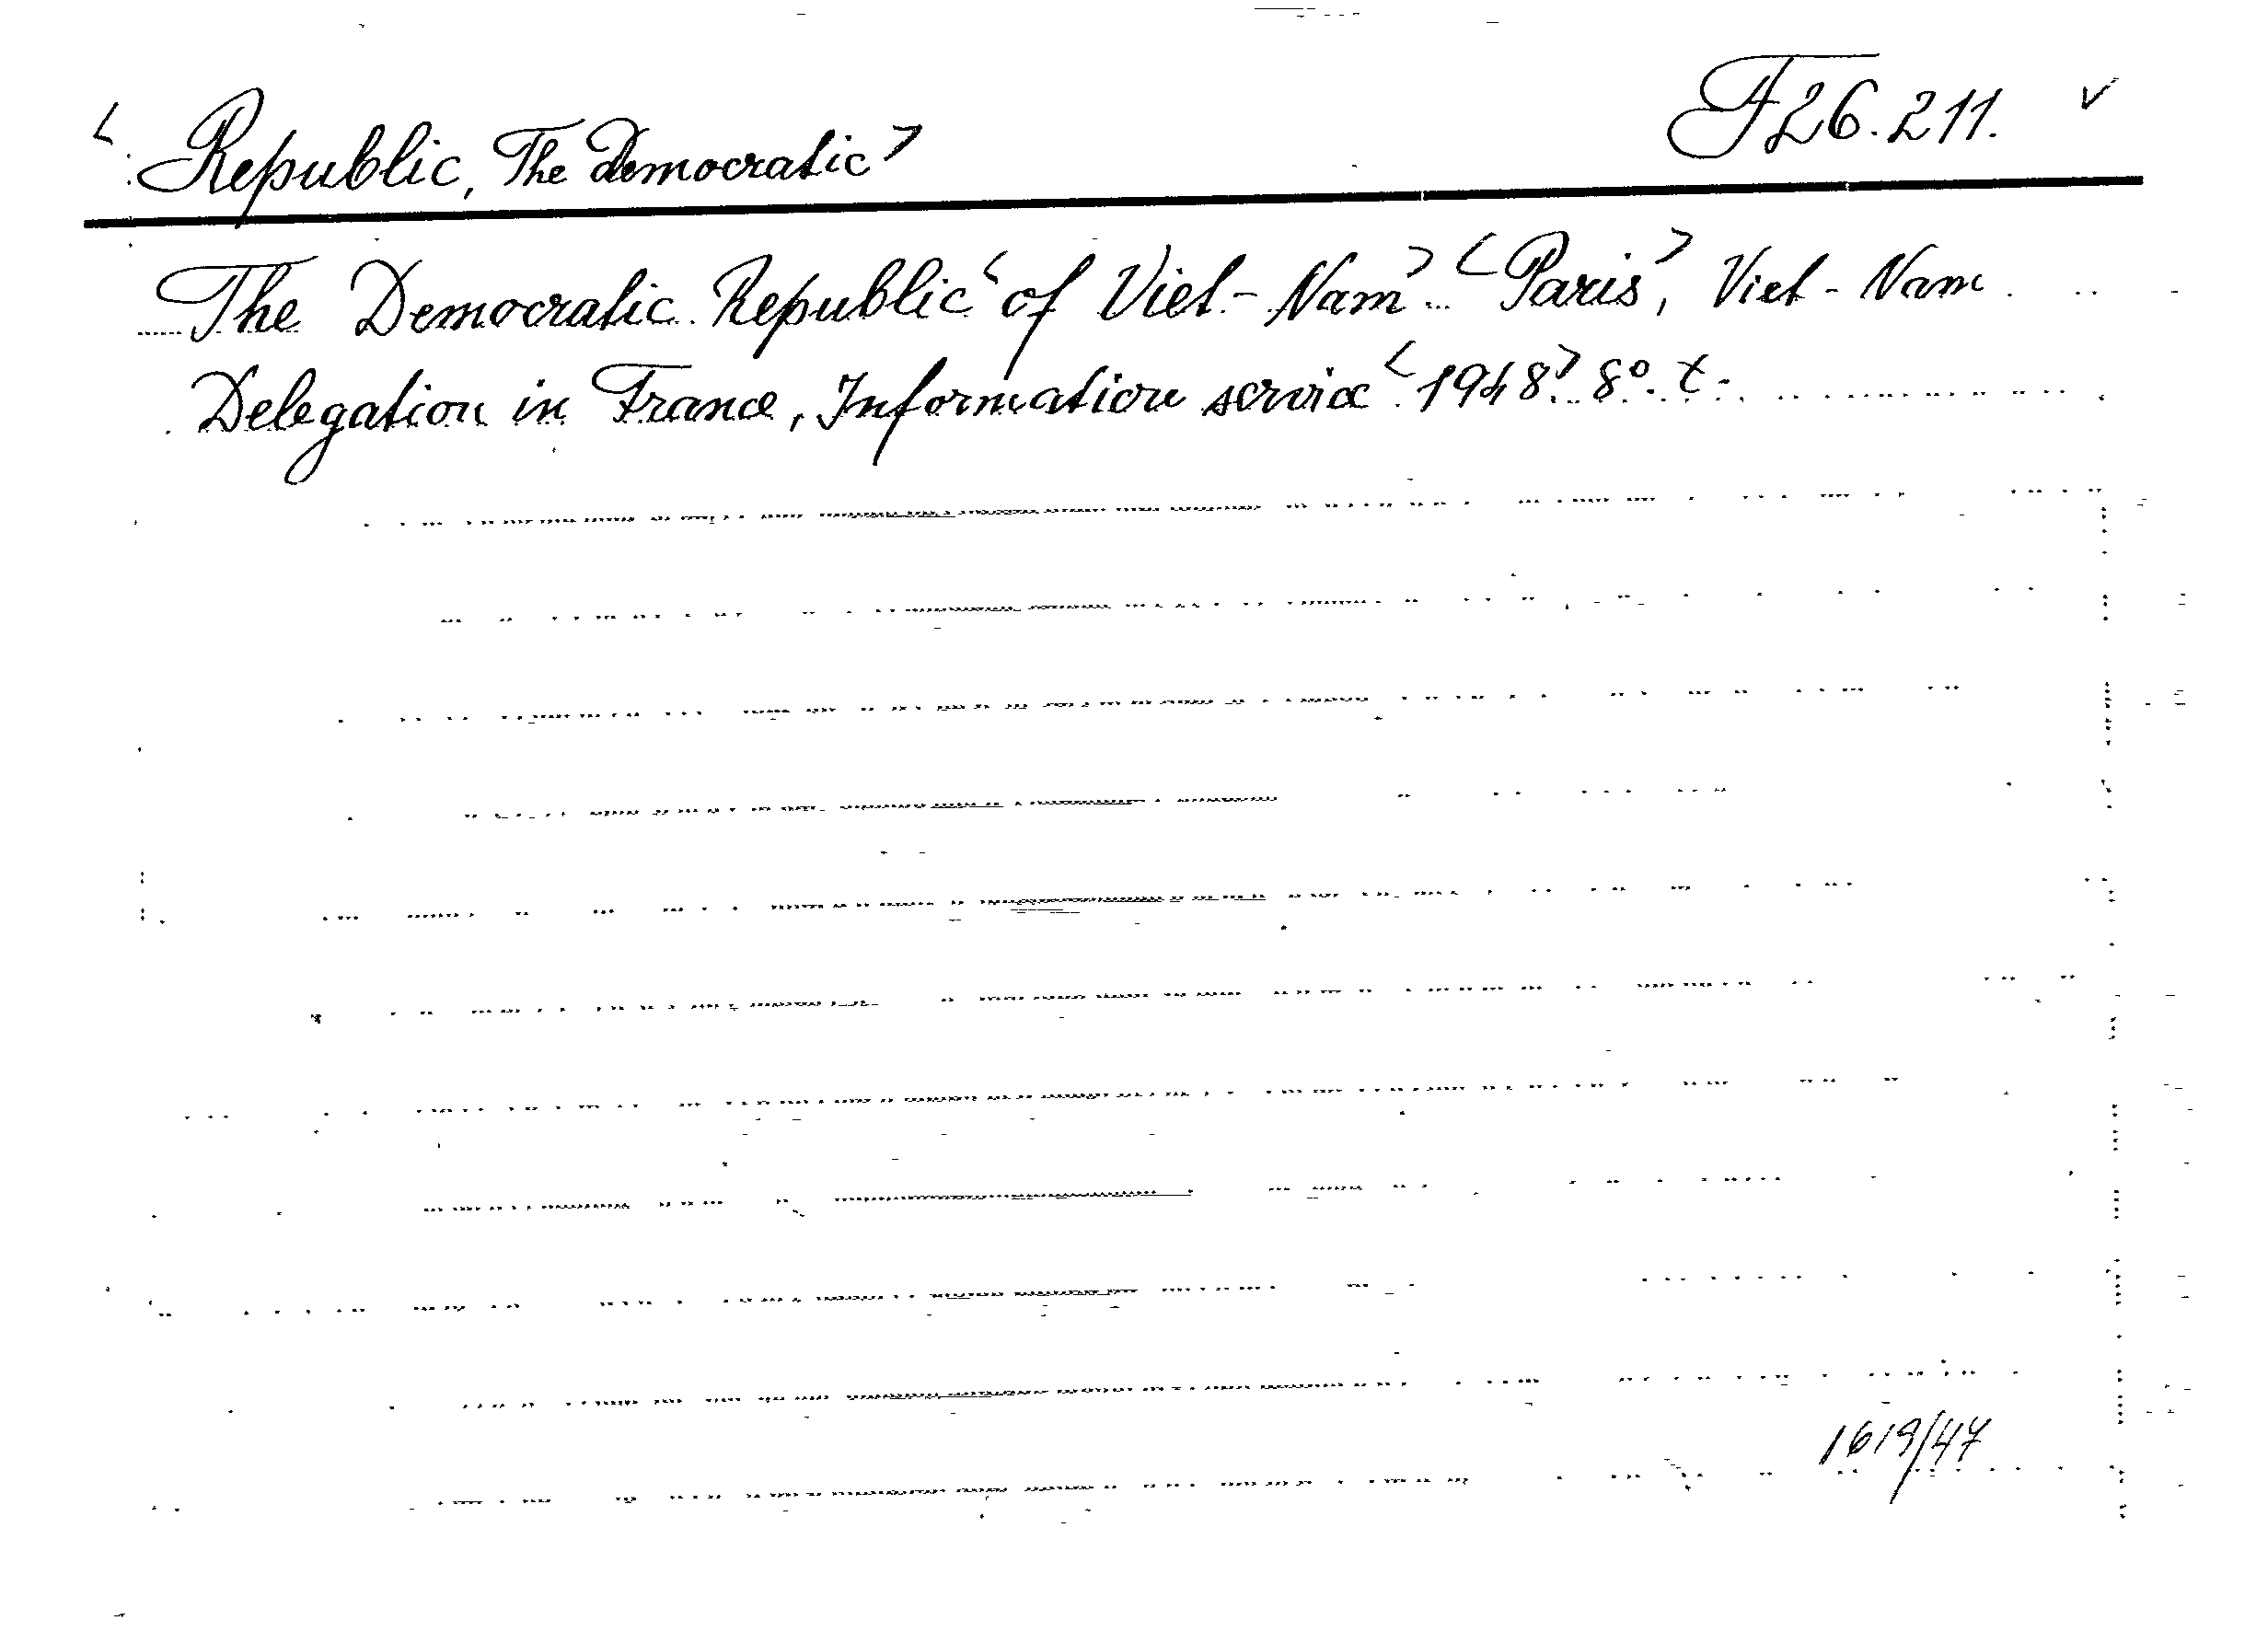 < Republic, The Democratic > F26.211. ✓
The Democratic Republic < of Viet-Nam > < Paris >, Viet-Nam
Delegation in France, Information service < 1948 > 8°. t.
1619/47